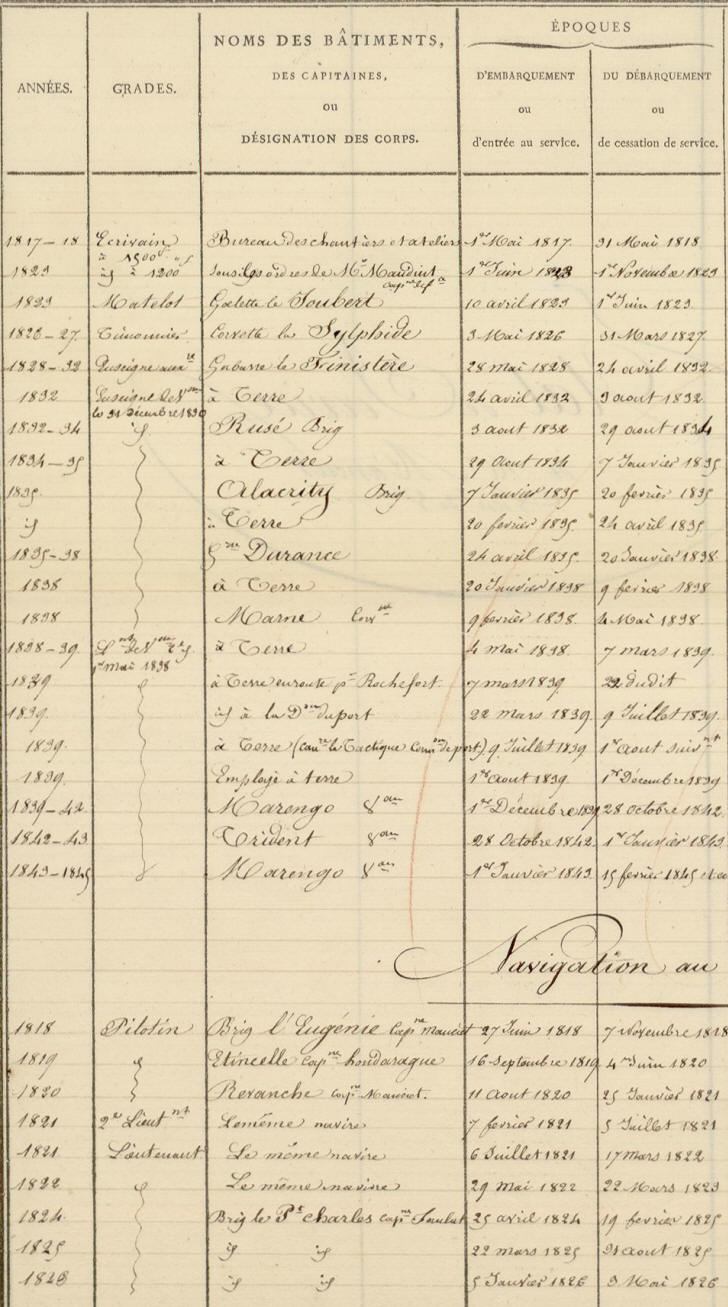 ANNÉES. GRADES. NOMS DES BÂTIMENTS, DES CAPITAINES, ou DÉSIGNATION DES CORPS. ÉPOQUES
D'EMBARQUEMENT ou d'entrée au service. DU DÉBARQUEMENT ou de cessation de service.
1817-18 Ecrivain à 1500 Bureau des chantiers et ateliers 1er Mai 1817. 31 Mai 1818
1823 id à 1200 sous les ordres de Mr 1er Juin 1823 1er Novembre 1823
1823 Matelot Goëlette le Joubert 10 avril 1823 1er Juin 1823
1826-27 Timonnier Corvette la Sylphide 3 Mai 1826 31 Mars 1827
1828-32 Enseigne auxre Gabarre le Finistère 28 mai 1828 24 avril 1832.
1832 Enseigne de Vau à Terre 24 avril 1832 3 aout 1832
le 31 décembre 1830
1832-34 id Rusé Brig 3 aout 1832 29 aout 1834
1834-35 à Terre 29 aout 1834 7 Janvier 1835
1835 Alacrity Brig 7 Janvier 1835 20 fevrier 1835
id à Terre 20 fevrier 1835 24 avril 1835
1835-38 Durance 24 avril 1835. 20 Janvier 1838
1838 à Terre 20 Janvier 1838 9 fevrier 1838
1838 Marne Corvte 9 fevrier 1838. 4 Mai 1838.
1838-39 Lnt de Vau à Terre 4 mai 1838. 7 mars 1839.
1er Mai 1838
1839 à Terre en route pr Rochefort. 7 mars 1839 22 dudit
1839. id à la Don du port 22 mars 1839. 9 Juillet 1839.
1839. à Terre (la Tactique du port) 9 Juillet 1839 1er aout suivnt
1839. Employé à terre 1er aout 1839. 1er Décembre 1839
1839-42 Marengo Vau 1er Décembre 1839 28 octobre 1842.
1842-43 Trident Vau 28 Octobre 1842. 1er Janvier 1843.
1843-1845 Marengo Vau 1er Janvier 1843. 15 fevrier 1845
Navigation au
1818 Pilotin Brig l'Eugénie Capne 27 Juin 1818 7 Novembre 1818
1819 Etincelle Capne 16 septembre 1819 4 Juin 1820
1820 Revanche capne 11 aout 1820 25 Janvier 1821
1821 2e Lieutnt Le même navire 7 fevrier 1821 5 Juillet 1821
1821 Lieutenant Le même navire 6 Juillet 1821 17 mars 1822
1822 Le même navire 29 mai 1822 22 Mars 1823
1824 Brig le Pce Charles capne 25 avril 1824 19 fevrier 1825
1825 id id 22 mars 1825 31 aout 1825
1826 id id 5 Janvier 1826 3 Mai 1826